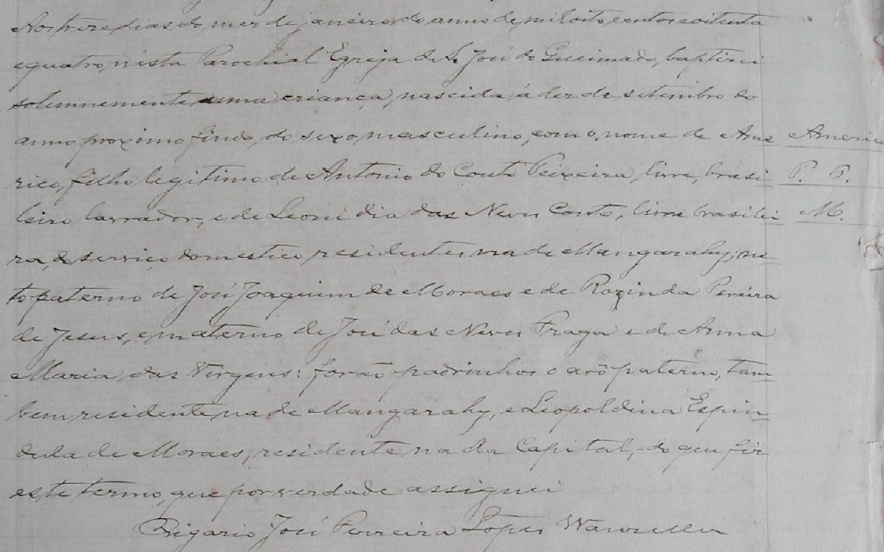 Aos treze dias do mez de janeiro do anno de mil oito centos e oitenta
e quatro, nesta Parochial Egreja de S. José do Queimado, baptizei
solemnemente a uma criança, nascida á dez de setembro do
anno proximo findo, do sexo masculino, com o nome de Ame
rico, filho legitimo de Antonio do Couto Teixeira, livre, brasi
leiro lavrador, e de Leonidia das Neves Couto, livre brasilei
ra, de serviço domestico, residentes na de Mangarahy; ne-
to paterno de José Joaquim de Moraes e de Rozinda Pereira
de Jesus, e materno de José das Neves Fraga e de Anna
Maria das Virgens: forão padrinhos o avô paterno, tam-
bem residente na de Mangarahy, e Leopoldina Espin-
dula de Moraes, residente na da Capital, do que fiz
este termo, que por verdade assignei
Vigario José Ferreira Lopes
Americo
P. P.
M.